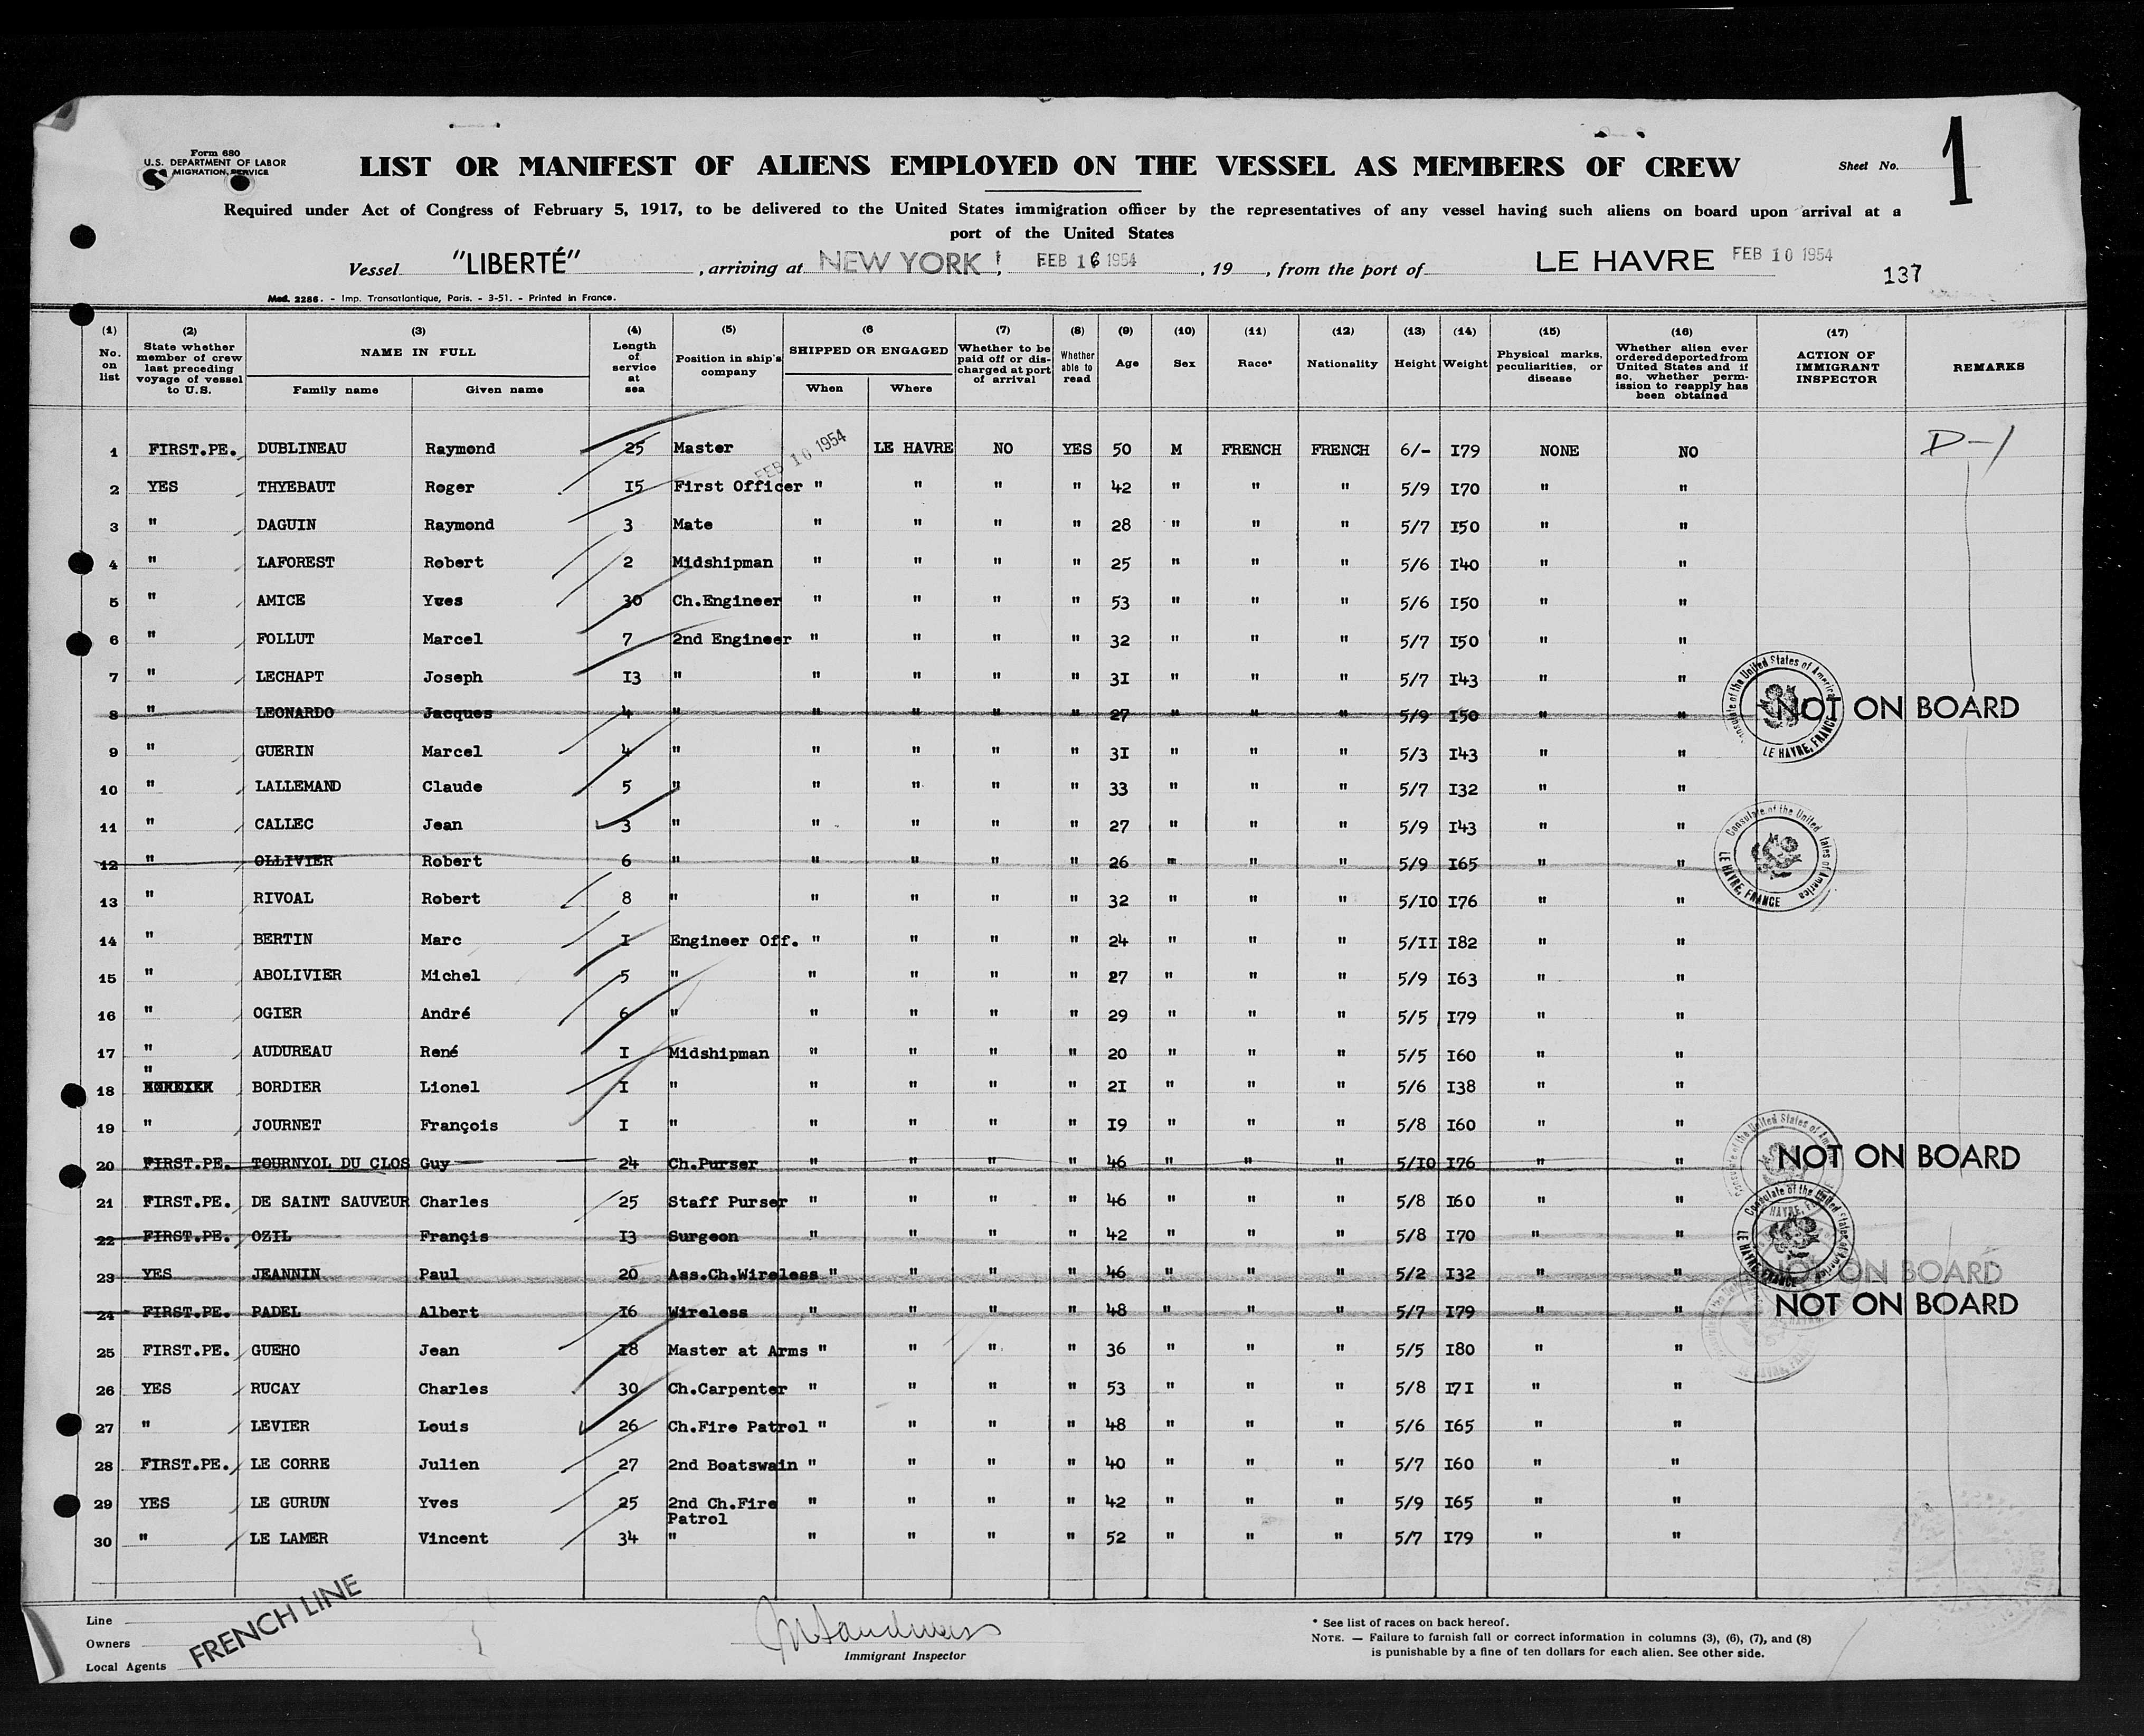 Form 680
U.S. DEPARTMENT OF LABOR
MIGRATION SERVICE
LIST OR MANIFEST OF ALIENS EMPLOYED ON THE VESSEL AS MEMBERS OF CREW
Sheet No. 1
Required under Act of Congress of February 5, 1917, to be delivered to the United States immigration officer by the representatives of any vessel having such aliens on board upon arrival at a
port of the United States
Vessel "LIBERTÉ", arriving at NEW YORK, FEB 16 1954, 19 , from the port of LE HAVRE FEB 10 1954
137
Mod. 2286. - Imp. Transatlantique, Paris. - 3-51. - Printed in France.
(1) No. on list
(2) State whether member of crew last preceding voyage of vessel to U.S.
(3) NAME IN FULL
Family name
Given name
(4) Length of service at sea
(5) Position in ship's company
(6 SHIPPED OR ENGAGED
When
Where
(7) Whether to be paid off or discharged at port of arrival
(8) Whether able to read
(9) Age
(10) Sex
(11) Race*
(12) Nationality
(13) Height
(14) Weight
(15) Physical marks, peculiarities, or disease
(16) Whether alien ever ordered deported from United States and if so, whether permission to reapply has been obtained
(17) ACTION OF IMMIGRANT INSPECTOR
REMARKS
1 FIRST.PE. DUBLINEAU Raymond 25 Master FEB 10 1954 LE HAVRE NO YES 50 M FRENCH FRENCH 6/- I79 NONE NO D-1
2 YES THYEBAUT Roger I5 First Officer " " " " 42 " " " 5/9 I70 " "
3 " DAGUIN Raymond 3 Mate " " " " 28 " " " 5/7 I50 " "
4 " LAFOREST Robert 2 Midshipman " " " " 25 " " " 5/6 I40 " "
5 " AMICE Yves 30 Ch.Engineer " " " " 53 " " " 5/6 I50 " "
6 " FOLLUT Marcel 7 2nd Engineer " " " " 32 " " " 5/7 I50 " "
7 " LECHAPT Joseph I3 " " " " " 3I " " " 5/7 I43 " "
8 " LEONARDO Jacques 4 " " " " " 27 " " " 5/9 I50 " " NOT ON BOARD
9 " GUERIN Marcel 4 " " " " " 3I " " " 5/3 I43 " "
10 " LALLEMAND Claude 5 " " " " " 33 " " " 5/7 I32 " "
11 " CALLEC Jean 3 " " " " " 27 " " " 5/9 I43 " "
12 " OLLIVIER Robert 6 " " " " " 26 " " " 5/9 I65 " "
13 " RIVOAL Robert 8 " " " " " 32 " " " 5/I0 I76 " "
14 " BERTIN Marc I Engineer Off. " " " " 24 " " " 5/II I82 " "
15 " ABOLIVIER Michel 5 " " " " " 27 " " " 5/9 I63 " "
16 " OGIER André 6 " " " " " 29 " " " 5/5 I79 " "
17 " AUDUREAU René I Midshipman " " " " 20 " " " 5/5 I60 " "
18 " BORDIER Lionel I " " " " " 2I " " " 5/6 I38 " "
19 " JOURNET François I " " " " " I9 " " " 5/8 I60 " "
20 FIRST.PE. TOURNYOL DU CLOS Guy 24 Ch.Purser " " " " 46 " " " 5/I0 I76 " " NOT ON BOARD
21 FIRST.PE. DE SAINT SAUVEUR Charles 25 Staff Purser " " " " 46 " " " 5/8 I60 " "
22 FIRST.PE. OZIL Françis I3 Surgeon " " " " 42 " " " 5/8 I70 " "
23 YES JEANNIN Paul 20 Ass.Ch.Wireless " " " " 46 " " " 5/2 I32 " " NOT ON BOARD
24 FIRST.PE. PADEL Albert I6 Wireless " " " " 48 " " " 5/7 I79 " " NOT ON BOARD
25 FIRST.PE. GUEHO Jean I8 Master at Arms " " " " 36 " " " 5/5 I80 " "
26 YES RUCAY Charles 30 Ch.Carpenter " " " " 53 " " " 5/8 I7I " "
27 " LEVIER Louis 26 Ch.Fire Patrol " " " " 48 " " " 5/6 I65 " "
28 FIRST.PE. LE CORRE Julien 27 2nd Boatswain " " " " 40 " " " 5/7 I60 " "
29 YES LE GURUN Yves 25 2nd Ch.Fire Patrol " " " " 42 " " " 5/9 I65 " "
30 " LE LAMER Vincent 34 " " " " " 52 " " " 5/7 I79 " "
Consulate of the United States of America
LE HAVRE, FRANCE
Line
Owners
Local Agents
FRENCH LINE
Immigrant Inspector
* See list of races on back hereof.
NOTE. — Failure to furnish full or correct information in columns (3), (6), (7), and (8)
is punishable by a fine of ten dollars for each alien. See other side.